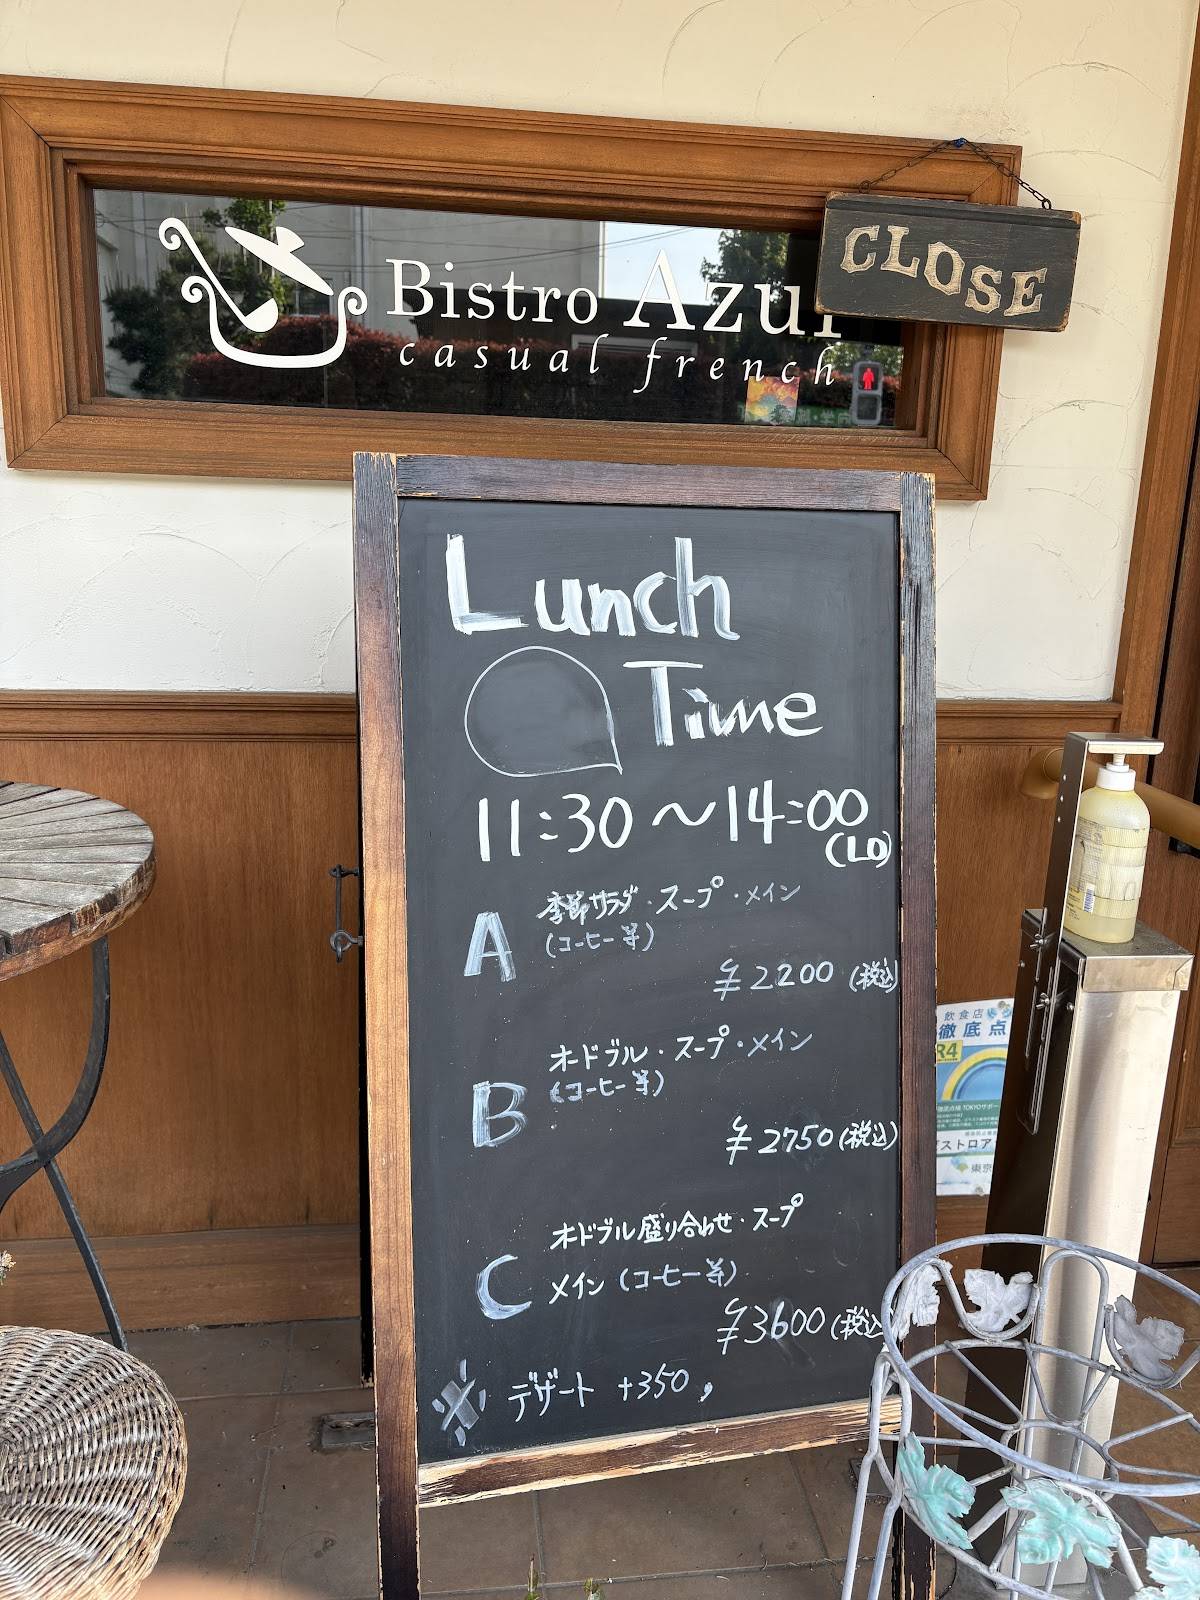 Bistro Azur
casual french
CLOSE
Lunch
Time
11:30〜14:00
(LO)
A
季節サラダ・スープ・メイン
(コーヒー等)
¥2200 (税込)
B
オードブル・スープ・メイン
(コーヒー等)
¥2750 (税込)
C
オードブル盛り合わせ・スープ
メイン (コーヒー等)
¥3600 (税込)
※ デザート +350,
飲食店
徹底点
R4
東京